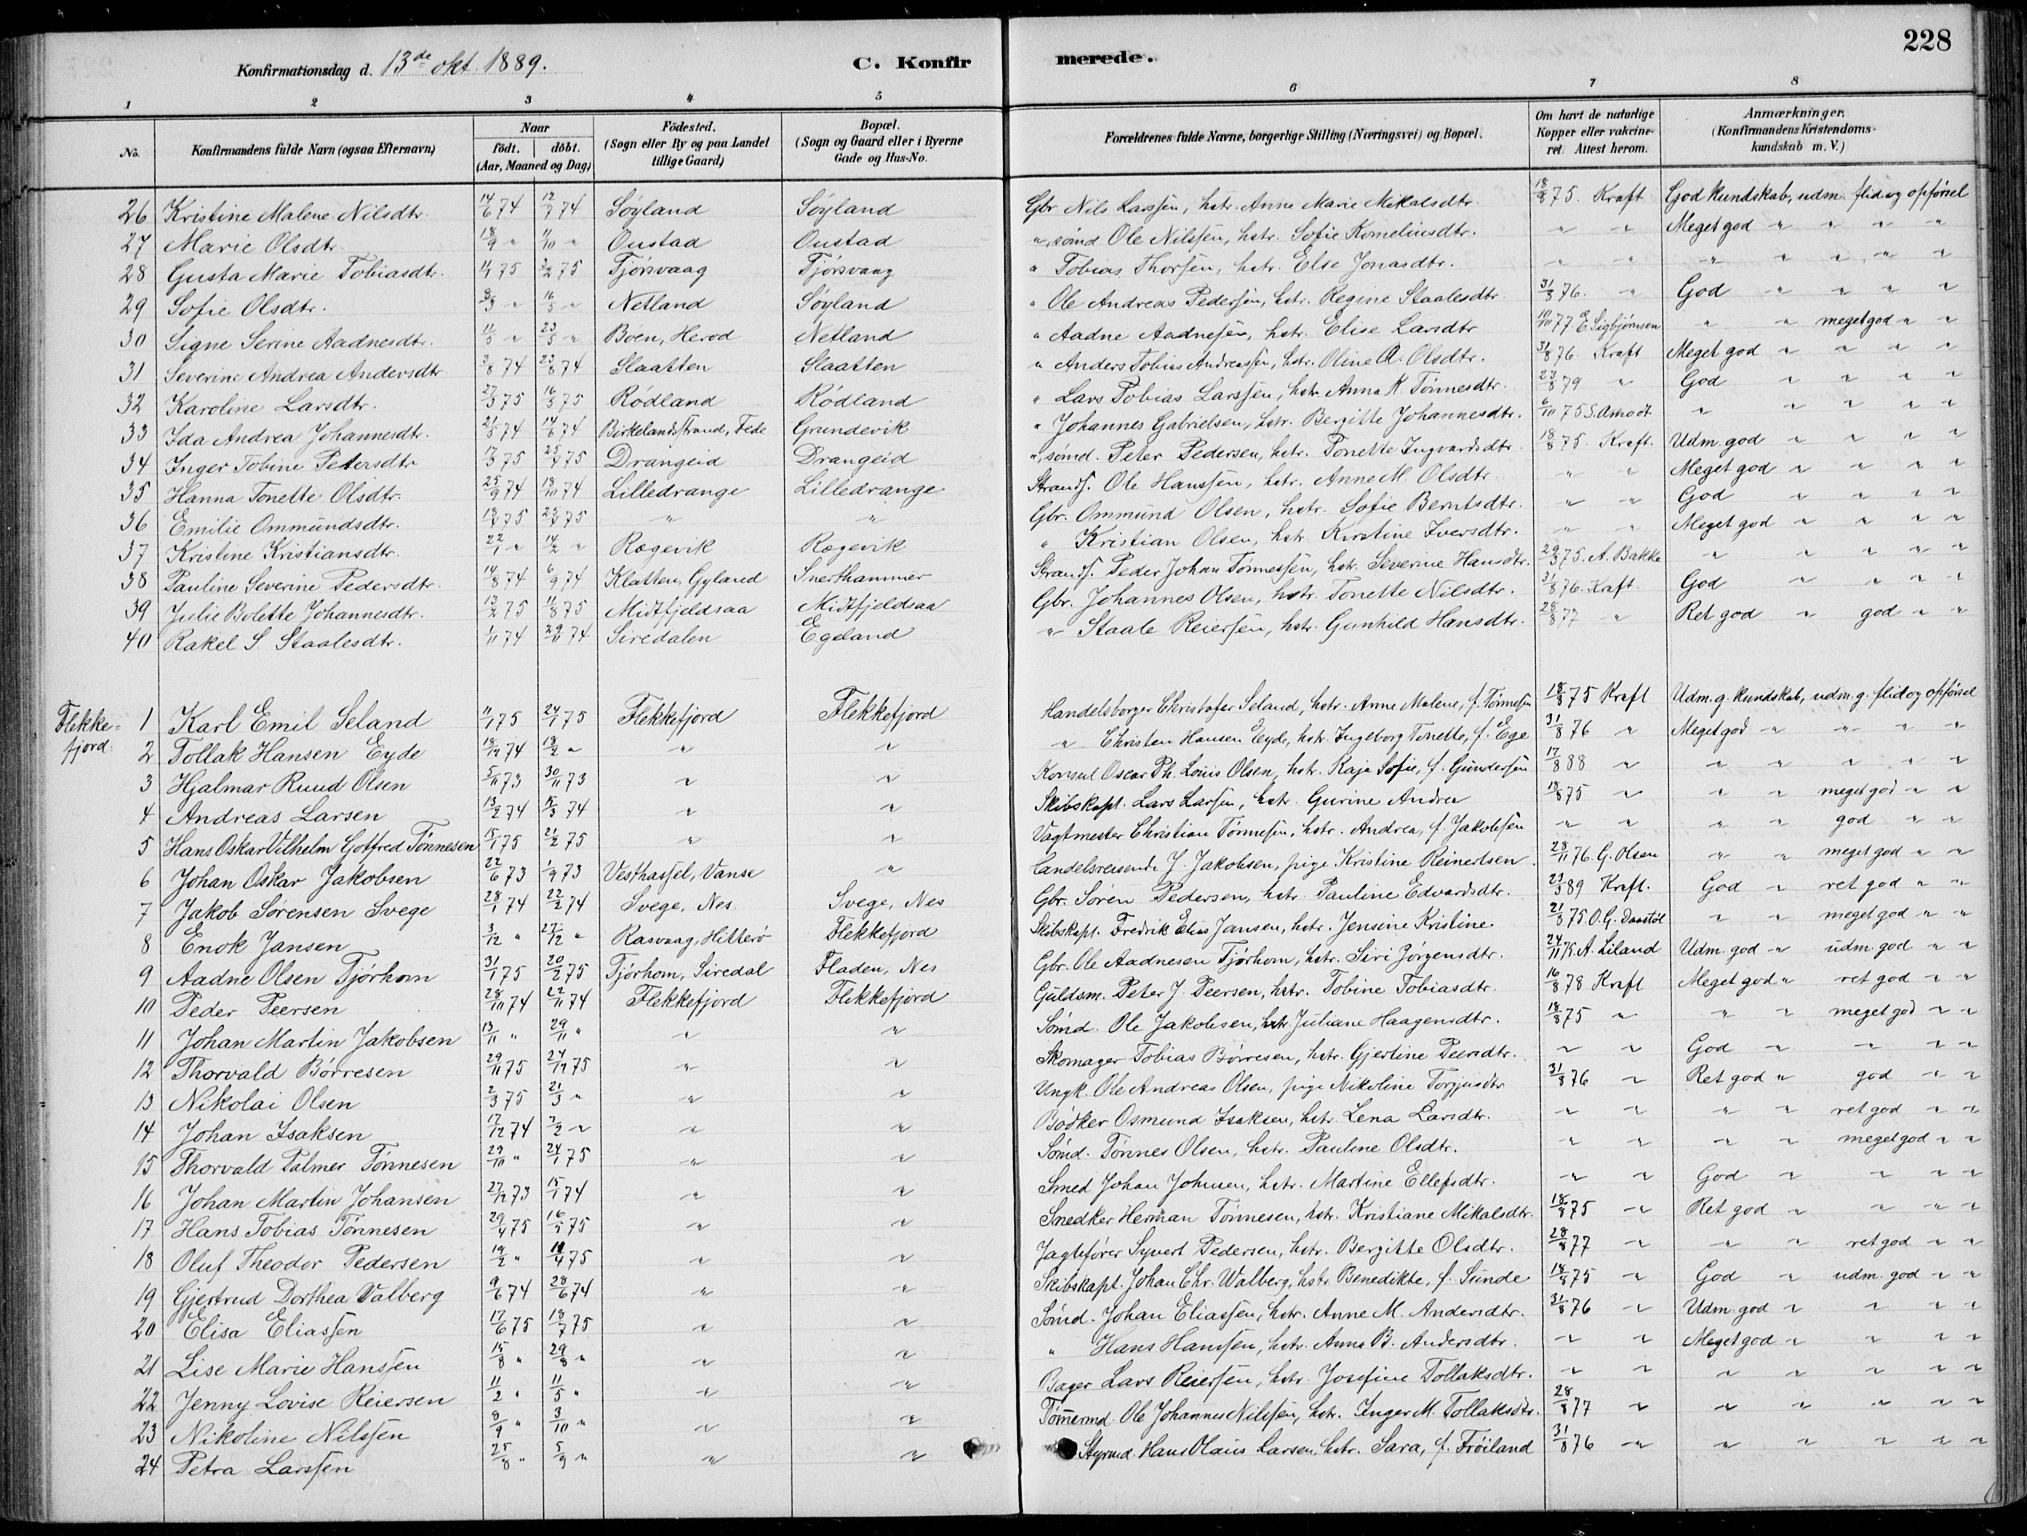 228
Konfirmationsdag d. 13de Okt. 1889. C. Konfirmerede.
1 2 3 4 5 6 7 8
No. Konfirmandens fulde Navn (ogsaa Efternavn) Naar født. døbt. (Aar, Maaned og Dag) Fødested. (Sogn eller By og paa Landet tillige Gaard) Bopæl. (Sogn og Gaard eller i Byerne Gade og Hus-No. Forældrenes fulde Navne, borgerlige Stilling (Næringsvei) og Bopæl. Om havt de naturlige Kopper eller vakcineret. Attest herom. Anmærkninger. (Konfirmandens Kristendomskundskab m. V.)
26 Kristine Malene Nilsdtr. 14/6 74 12/7 74 Søyland Søyland Gbr. Nils Larssen, hstr. Anne Marie Mikalsdtr. 18/8 75. Kraft God kundskab, udm. flid og opførsel
27 Marie Olsdtr. 18/9 " 11/10 " Oustad Oustad ", sømd Ole Nilssen, hstr. Sofie Korneliusdtr. " " Meget god " " " "
28 Gusta Marie Tobiasdtr. 1/1 75 2/2 75 Tjørsvaag Tjørsvaag " Tobias Thorsen, hstr. Else Jonasdtr. " " " " " " "
29 Sofie Olsdtr. 8/3 " 16/3 " Netland Søyland " Ole Andreas Pedersen, hstr. Regine Staalesdtr. 31/8 76. " God " " " "
30 Signe Serine Aadnesdtr. 11/5 " 23/5 " Boen, Herod Netland " Aadne Aadnesen, hstr. Elise Larsdtr 10/10 77 E. Sigbjørnsen " " meget god " "
31 Severine Andrea Andersdtr 3/8 74 23/8 74 Slaatten Slaatten " Anders Tobias Andreassen, hstr. Oline A. Olsdtr. 31/8 76 Kraft Meget god " " " "
32 Karoline Larsdtr. 27/3 75 16/5 75 Rødland Rødland " Lars Tobias Larssen, hstr. Anna K. Tønnesdtr. 23/8 79 " God " " " "
33 Ida Andrea Johannesdtr. 21/5 74 14/6 74 Birkelandstrand, Fede Grundevik " Johannes Gabrielsen, hstr. Bergitte Johannesdtr. 6/10 75 S. Amodt " " " " "
34 Inger Tobine Petersdtr 17/3 75 25/4 75 Drangeid Drangeid ", sømd. Peter Pedersen, hstr. Tonette Ingvardsdtr. 18/8 75. Kraft. Udm. god " " " "
35 Hanna Tonette Olsdtr. 25/9 74 18/10 74 Lilledrange Lilledrange Strands. Ole Hanssen, hstr. Anne M. Olsdtr. " " Meget god " " " "
36 Emilie Ommundsdtr. 75 75 " " Gbr. Ommund Olsen, hstr. Sofie Berntsdtr. " " God " " " "
37 Kristine Kristiansdtr. 22/1 " 14/2 " Rægevik Rægevik " Kristian Olsen, hstr. Kirstine Iversdtr. " " Meget god " " " "
38 Pauline Severine Pedersdtr. 14/8 74 6/9 74 Klatten, Gyland Snerthammer Strands. Peder Johan Tønnessen, hstr. Severine Hansdtr. 29/3 75. A. Bakke " " " " "
39 Julie Bolette Johannesdtr. 13/2 75 11/8 75 Midtfjeldsaa Midtfjeldsaa Gbr. Johannes Olsen, hstr. Tonette Nilsdtr. 31/8 76. Kraft. God " " " "
40 Rakel S Staalesdtr. 1/11 74 29/11 74 Siredalen Egeland " Staale Reiersen, hstr. Gunhild Hansdtr. 28/8 77 " Ret god " god " "
Flekkefjord.
1 Karl Emil Seland 11/1 75 24/1 75 Flekkefjord Flekkefjord Handelsborger Christofer Seland, hstr. Anne Malene, f. Tønnesen 18/8 75 Kraft Udm. g. kundskab, udm. g. flid og opførsel
2 Tollak Hansen Eyde 18/12 74 18/2 " " " " Christen Hansen Eyde, hstr. Ingeborg Tonette, f. Ege 31/8 76 " Meget god " " " "
3 Hjalmar Ruud Olsen 5/11 73 30/11 73 " " Konsul Oscar Ph. Louis Olsen, hstr. Kaja Sofie, f. Gundersen 17/8 88 " " " " " "
4 Andreas Larsen 13/2 74 15/3 74 " " Skibskapt. Lars Larsen, hstr. Gurine Andrea 18/8 75 " " " meget god " "
5 Hans Oskar Vilhelm Gotfred Tønnesen 15/1 75 21/2 75 " " Vagtmester Christian Tønnesen, hstr. Andrea, f. Jakobsen " " " " god " "
6 Johan Oskar Jakobsen 22/6 73 1/9 73 Vesthassel, Vanse " Handelsreisende J. Jakobsen, pige Kristine Reinertsen 28/11 76. G. Olsen " " meget god " "
7 Jakob Sørensen Svege 28/1 74 22/2 74 Svege, Nes. Svege, Nes Gbr. Søren Pedersen, hstr. Pauline Edvardsdtr. 23/3 89 Kraft. God " ret god " "
8 Enok Jansen 3/12 " 27/12 " Rasvaag, Hitterø Flekkefjord Skibskapt. Fredrik Elias Jansen, hstr. Jensine Kristine 21/8 75. O. G. Danstøl " " meget god " "
9 Aadne Olsen Tjørhom 31/1 75 20/2 75 Tjørhom, Siredal Fladen, Nes Gbr. Ole Aadnesen Tjørhom, hstr. Siri Jørgensdtr. 24/11 A. Liland Udm. god " udm. god " "
10 Peder Peersen 28/10 74 22/11 74 Flekkefjord Flekkefjord Guldsm. Peter J. Peersen, hstr. Tobine Tobiasdtr. 16/8 78 Kraft Meget god " ret god " "
11 Johan Martin Jakobsen 13/11 " 29/11 " " " Sømd. Ole Jakobsen, hstr. Juliane Haagensdtr. 18/8 75 " " " meget god " "
12 Thorvald Børresen 29/11 75 24/12 75 " " Skomager Tobias Børresen, hstr. Gjertine Peersdtr. " " God " " " "
13 Nikolai Olsen 2/3 75 21/3 " " " Ungk. Ole Andreas Olsen, pige Nikoline Torjusdtr 31/8 76 " Ret god " god " "
14 Johan Isaksen 17/12 74 7/2 " " " Bødker Osmund Isaksen, hstr. Lena Larsdtr. " " " " ret god " "
15 Thorvald Palmer Tønnesen 29/10 " 24/1 75 " " Sømd. Tønnes Olsen, hstr. Pauline Olsdtr. " " " " meget god " "
16 Johan Martin Johansen 27/12 73 15/1 74 " " Smed Johan Johnsen, hstr. Martine Ellefsdtr. " " God " " " "
17 Hans Tobias Tønnesen 29/4 75 16/5 75 " " Snedker Herman Tønnesen, hstr. Kristiane Mikalsdtr. 18/8 75 " Ret god " " " "
18 Oluf Theodor Pedersen 19/2 " 4 75 " " Jagtefører Syvert Pedersen, hstr. Bergitte Olsdtr. 28/8 77 " " " ret god " "
19 Gjertrud Dorthea Valberg 9/6 74 28/6 74 " " Skibskapt. Johan Chr. Walberg, hstr. Benedikte, f. Sunde 18/8 75 " God " udm. god " "
20 Elisa Eliassen 17/6 75 18/7 75 " " Sømd. Johan Eliassen, hstr. Anne M. Andersdtr. 31/8 76 " Udm. god " " " "
21 Lise Marie Hanssen 15/8 " 29/8 " " " " Hans Hanssen, hstr. Anna B. Andersdtr. " " Meget god " " " "
22 Jenny Lovise Reiersen 11/2 " 11/5 " " " Bager Lars Reiersen, hstr. Josefine Tollaksdtr. " " " " " " "
23 Nikoline Nilssen 8/9 " 3/10 " " " Tømmermd Ole Johannes Nilssen, hstr. Inger M. Tollaksdtr. 28/8 77 " " " " " "
24 Petra Larssen 25/8 " 5/9 " " " Styrmd. Hans Olaus Larsen, hstr. Sara, f. Frøiland 31/8 76 " " " " " "